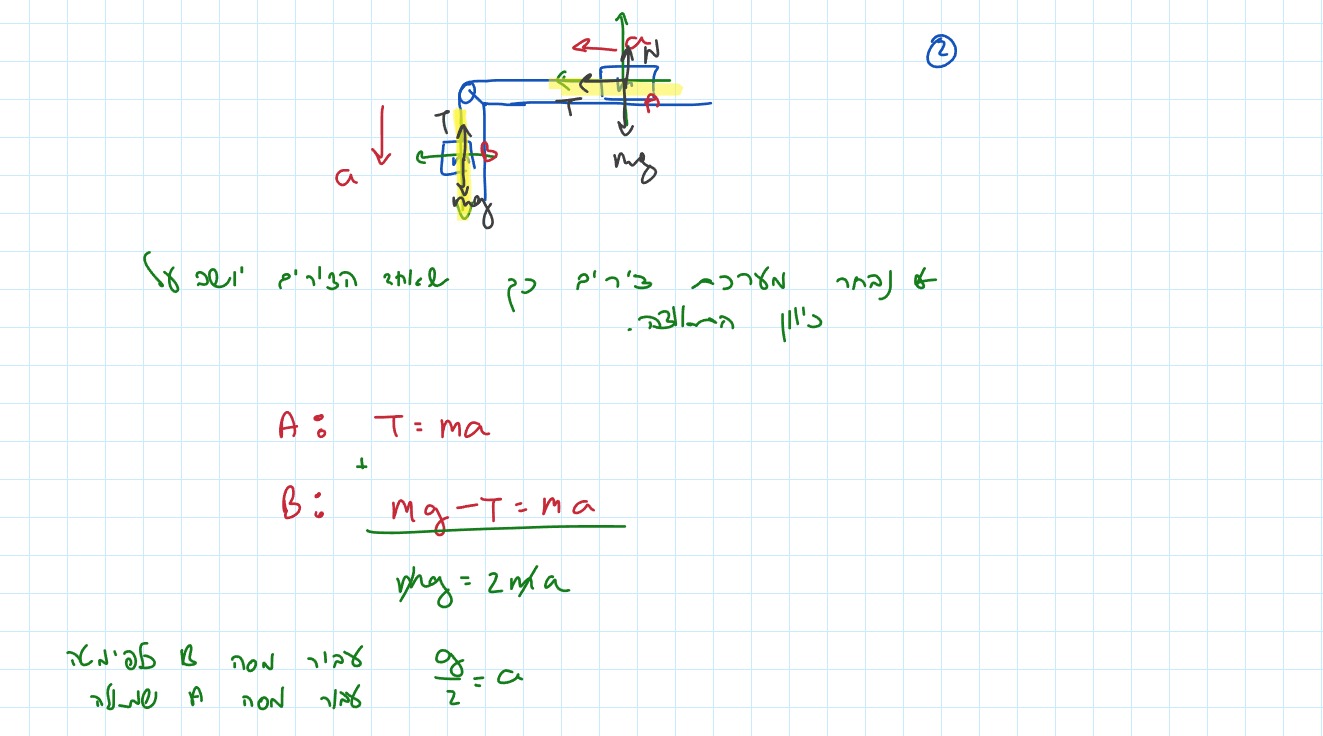 2
a
N
m
T
A
mg
T
B
m
a
mg
נבחר מערכת צירים כך שאחד הצירים יושב על
כיוון התאוצה.
A: T = ma
+
B: mg - T = ma
mg = 2ma
g/2 = a עבור מסה B כלפי מטה
עבור מסה A שמאלה